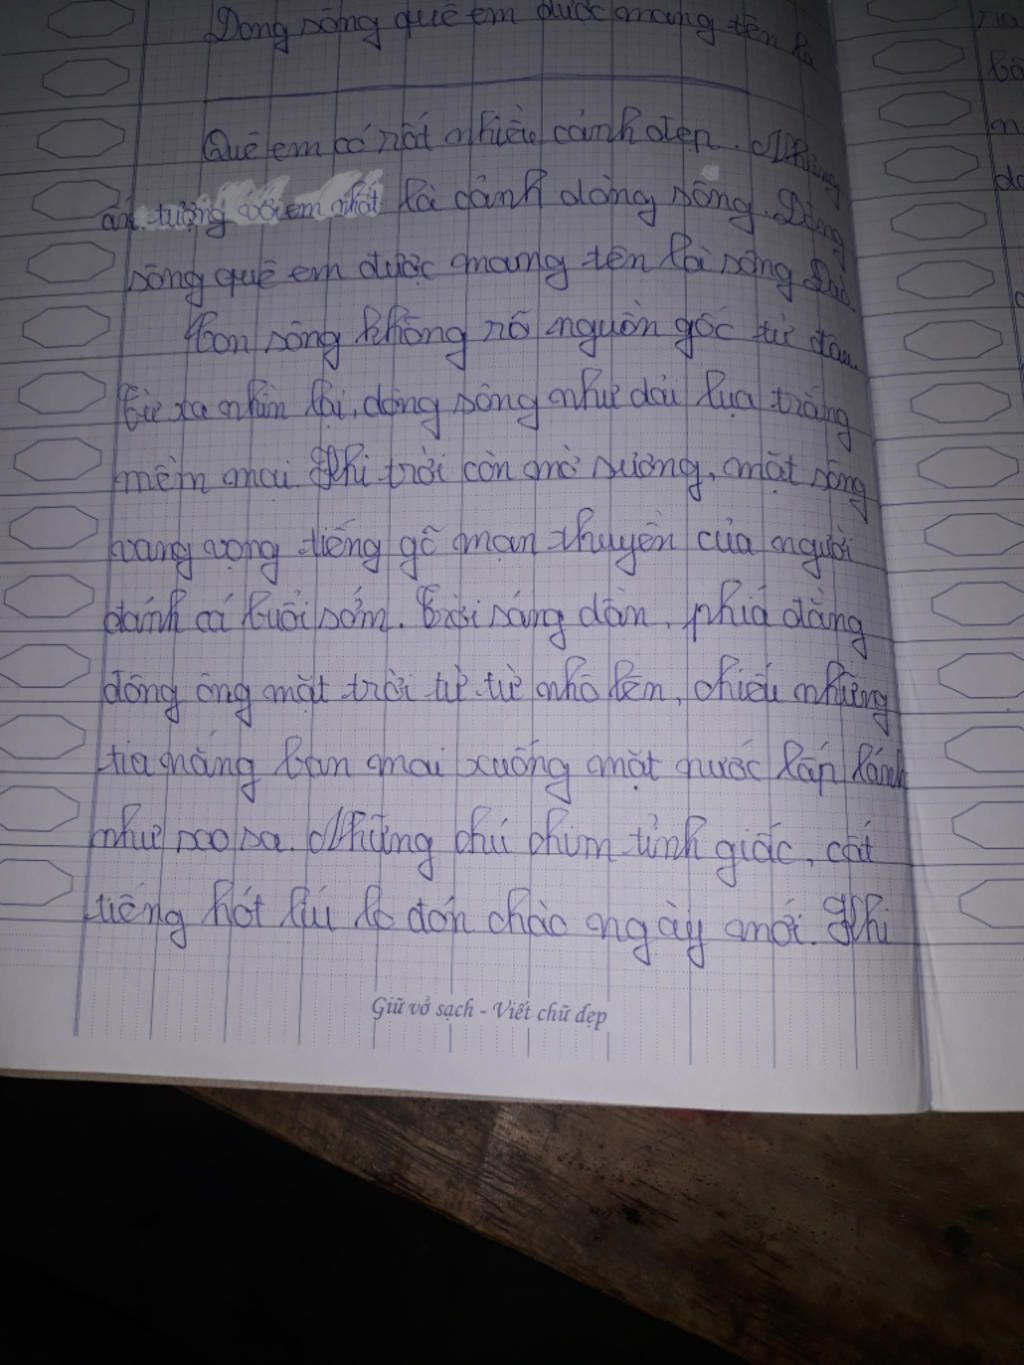 Dòng sông quê em được mang tên là
Quê em có rất nhiều cảnh đẹp. Nhưng
ấn tượng với em nhất là cảnh dòng sông. Dòng
sông quê em được mang tên là sông
Con sông không rõ nguồn gốc từ đâu.
Từ xa nhìn lại, dòng sông như dải lụa trắng
mềm mại. Khi trời còn mờ sương, mặt sông
vang vọng tiếng gõ mạn thuyền của người
đánh cá buổi sớm. Trời sáng dần, phiá đằng
đông ông mặt trời từ từ nhô lên, chiếu những
tia nắng ban mai xuống mặt nước lấp lánh
như sao sa. Những chú chim tỉnh giấc, cất
tiếng hót líu lo đón chào ngày mới. Khi
Giữ vở sạch - Viết chữ đẹp